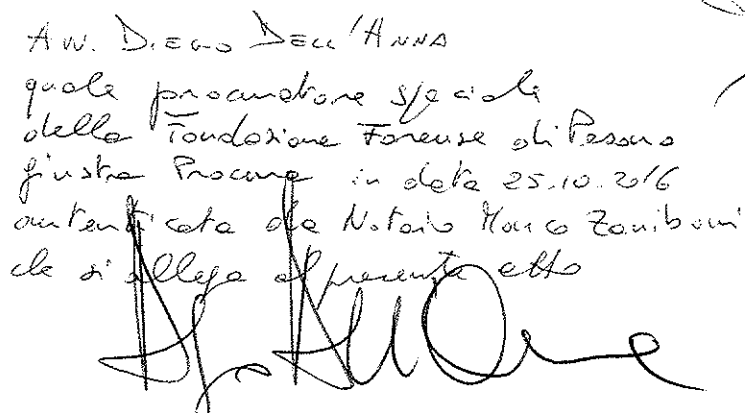 Avv. DIEGO DELL'ANNA
quale procuratore speciale
della Fondazione Forense di Pesaro
giusta Procura in data 25.10.2016
autenticata da Notaio Marco Zaniboni
che si allega al presente atto